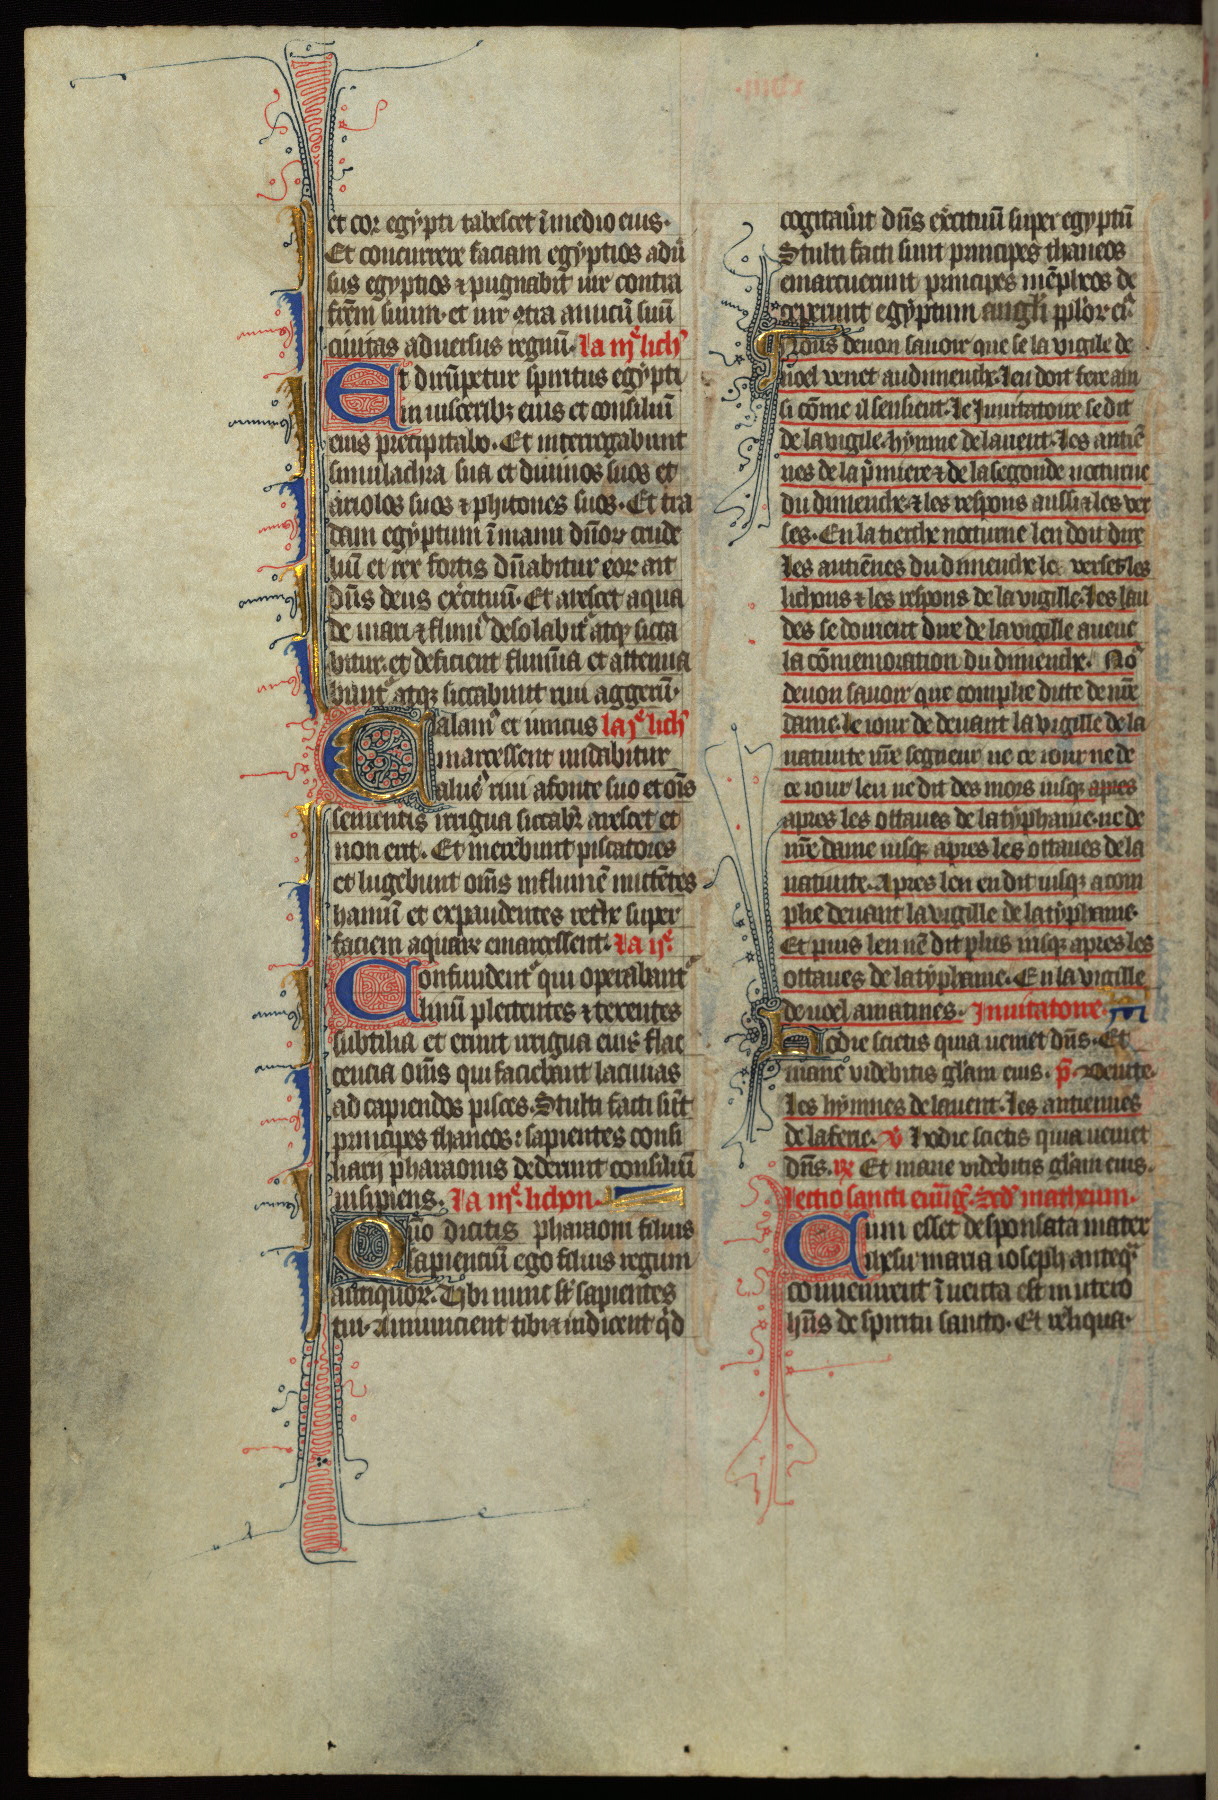 et cor egypti tabescet ī medio eius.
Et concurrere faciam egyptios adū
sus egyptios ⁊ pugnabit uir contra
frēm suum. et uir ꝯtra amicū suū
ciuitas aduersus regnū. La iijͤ. lich'
Et dirūpetur spiritus egypti
in uisceribꝫ eius et consiliū
eius precipitabo. Et interrogabunt
simulachra sua et diuinos suos et
ariolos suos ⁊ phitones suos. Et tra
dam egyptum ī manu dn̄oꝝ crude
liū et rex fortis dn̄abitur eoꝝ ait
dn̄s deus exͥcituū. Et arescet aqua
de mari ⁊ fluuiꝰ desolabitͬ atqꝫ sicca
bitur. et deficient flumīa et attenua
buntͬ atqꝫ siccabunt riui aggerū.
Calamꝰ et iuncus la jͤ. lich'
marcessent nudabitur
alueꝰ riui a fonte suo et oīs
sementis irrigua siccabitͬ arescet et
non erit. Et merebunt piscatores
et lugebunt om̄s in flumē mittētes
hamū et expandentes rethe super
faciem aquarꝝ emarcessent. La ijͤ.
Confundentͬ qui operabantͬ
linū plectentes ⁊ texentes
subtilia et erunt irrigua eius flac
cencia om̄s qui faciebant lacunas
ad capiendos pisces. Stulti facti sūt
principes thaneos. sapientes consi
liarij pharaonis dederunt consiliū
insipiens. La iijͤ. lichon.
Quō dicitis pharaoni filius
sapienciū ego filius regum
antiquoꝝ. Ubi nunc sͭ sapientes
tui. Annuncient tibi ⁊ indicent qͥd
cogitau̾it dn̄s exͥcituū super egyptū
Stulti facti sunt principes thaneos
emarcuerunt principes mēpheos de
ceperunt egyptum angl'm pplōꝝ eiꝰ
Nous deuon sauoir que se la vigile de
noel vient au dimenche. len doit fere ain
si cōme il sensieut. Le Inuitatoire se dit
de la vigile. hymne de lauent. Les antiē
nes de la pͥmiere ⁊ de la segonde nocturne
du dimenche. ⁊ les respons aussi ⁊ les ver
ses. En la tierche nocturne len doit dire
les antiēnes du dimenche le verset les
lichons ⁊ les respons de la vigille. Les lau
des se doiuent dire de la vigille auenc
la cōmemoration du dimenche. Noꝰ
deuon sauoir que complie dite de nr̄e
dame. le iour de deuant la vigille de la
natiuite nr̄e segneur ne ce iour ne de
ce iour len ne dit des mors iusqꝫ apres
apres les ottaues de la typhanie. ne de
nr̄e dame iusqꝫ apres les ottaues de la
natiuite. Apres len en dit iusqꝫ a com
plie deuant la vigille de la typhanie.
Et puis len nē dit plus iusqꝫ apres les
ottaues de la typhanie. En la vigille
de noel a matines. Inuitatoire.
Hodie scietis quia ueniet dn̄s. Et
mane videbitis gl'am eius. p̄. Venite.
Les hymnes de lauent. Les antiennes
de la ferie. v̄ Hodie scietis quia ueniet
dn̄s. ꝶ Et mane videbitis gl'am eius.
Lectio sancti euu̅g'. scd' matheum.
Cum esset desponsata mater
ihesu maria ioseph anteqͣ
conuenirent īuenta est in utero
hn̄s de spiritu sancto. Et reliqua.